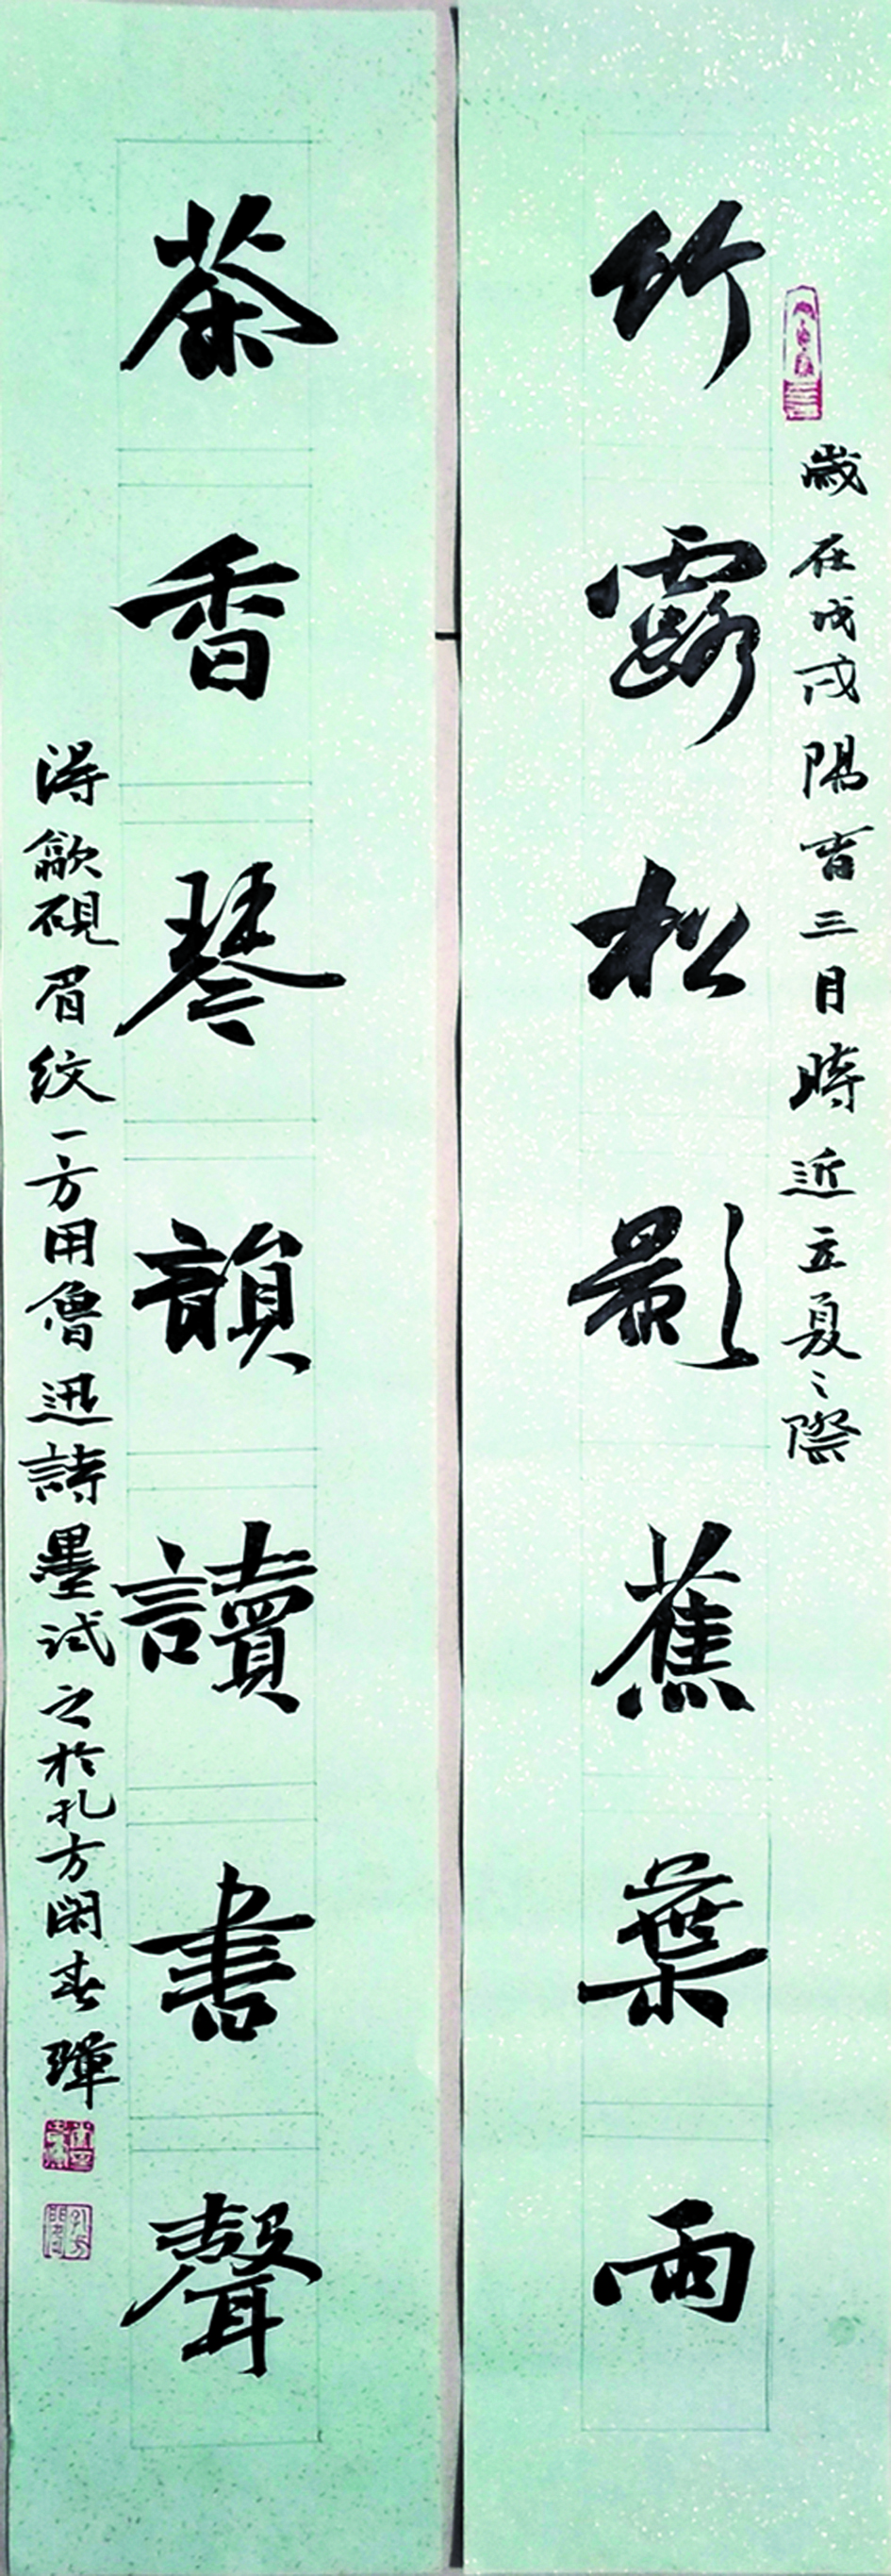 歲在戊戌陽春三月時近立夏之際
竹露松影蕉葉雨
茶香琴韻讀書聲
得歙硯眉紋一方用魯迅詩墨試之於孔方閣春暉